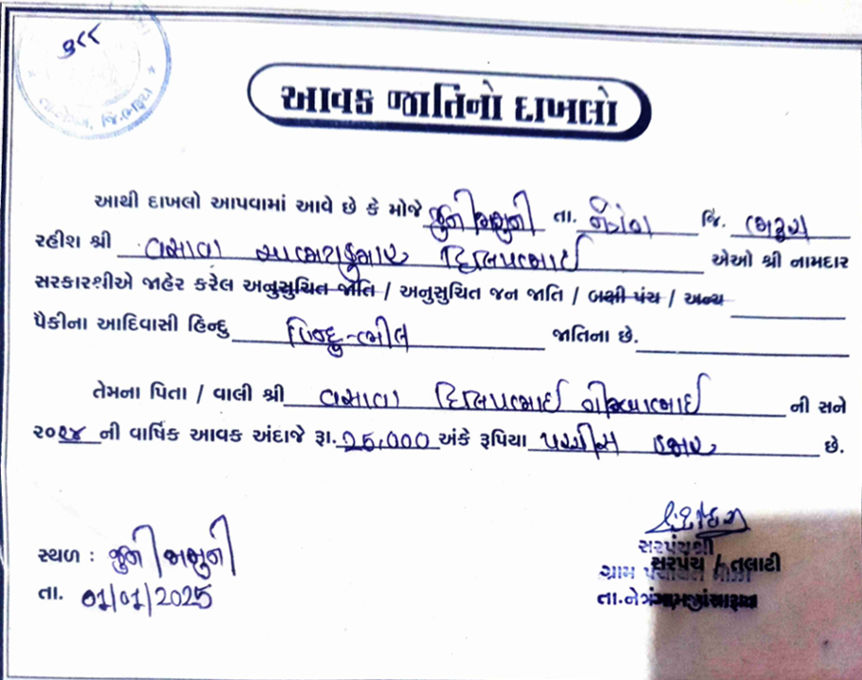 ૭૮૮
તા.નેત્રંગ, જિ.ભરૂચ
આવક જાતિનો દાખલો
આથી દાખલો આપવામાં આવે છે કે મોજે જુની જામુની તા. નેત્રંગ જિ. ભરૂચ
રહીશ શ્રી વસાવા દિલિપભાઈ એઓ શ્રી નામદાર
સરકારશ્રીએ જાહેર કરેલ અનુસુચિત જાતિ / અનુસુચિત જન જાતિ / બક્ષી પંચ / અન્ય
પૈકીના આદિવાસી હિન્દુ હિન્દુ-ભીલ જાતિના છે.
તેમના પિતા / વાલી શ્રી વસાવા દિલિપભાઈ ની સને
૨૦૨૪ ની વાર્ષિક આવક અંદાજે રૂા. ૨૫,૦૦૦ અંકે રૂપિયા પચ્ચીસ હજાર છે.
સ્થળ : જુની જામુની
તા. 01/01/2025
સરપંચશ્રી
સરપંચ / તલાટી
ગ્રામ પંચાયત
તા.નેત્રંગ